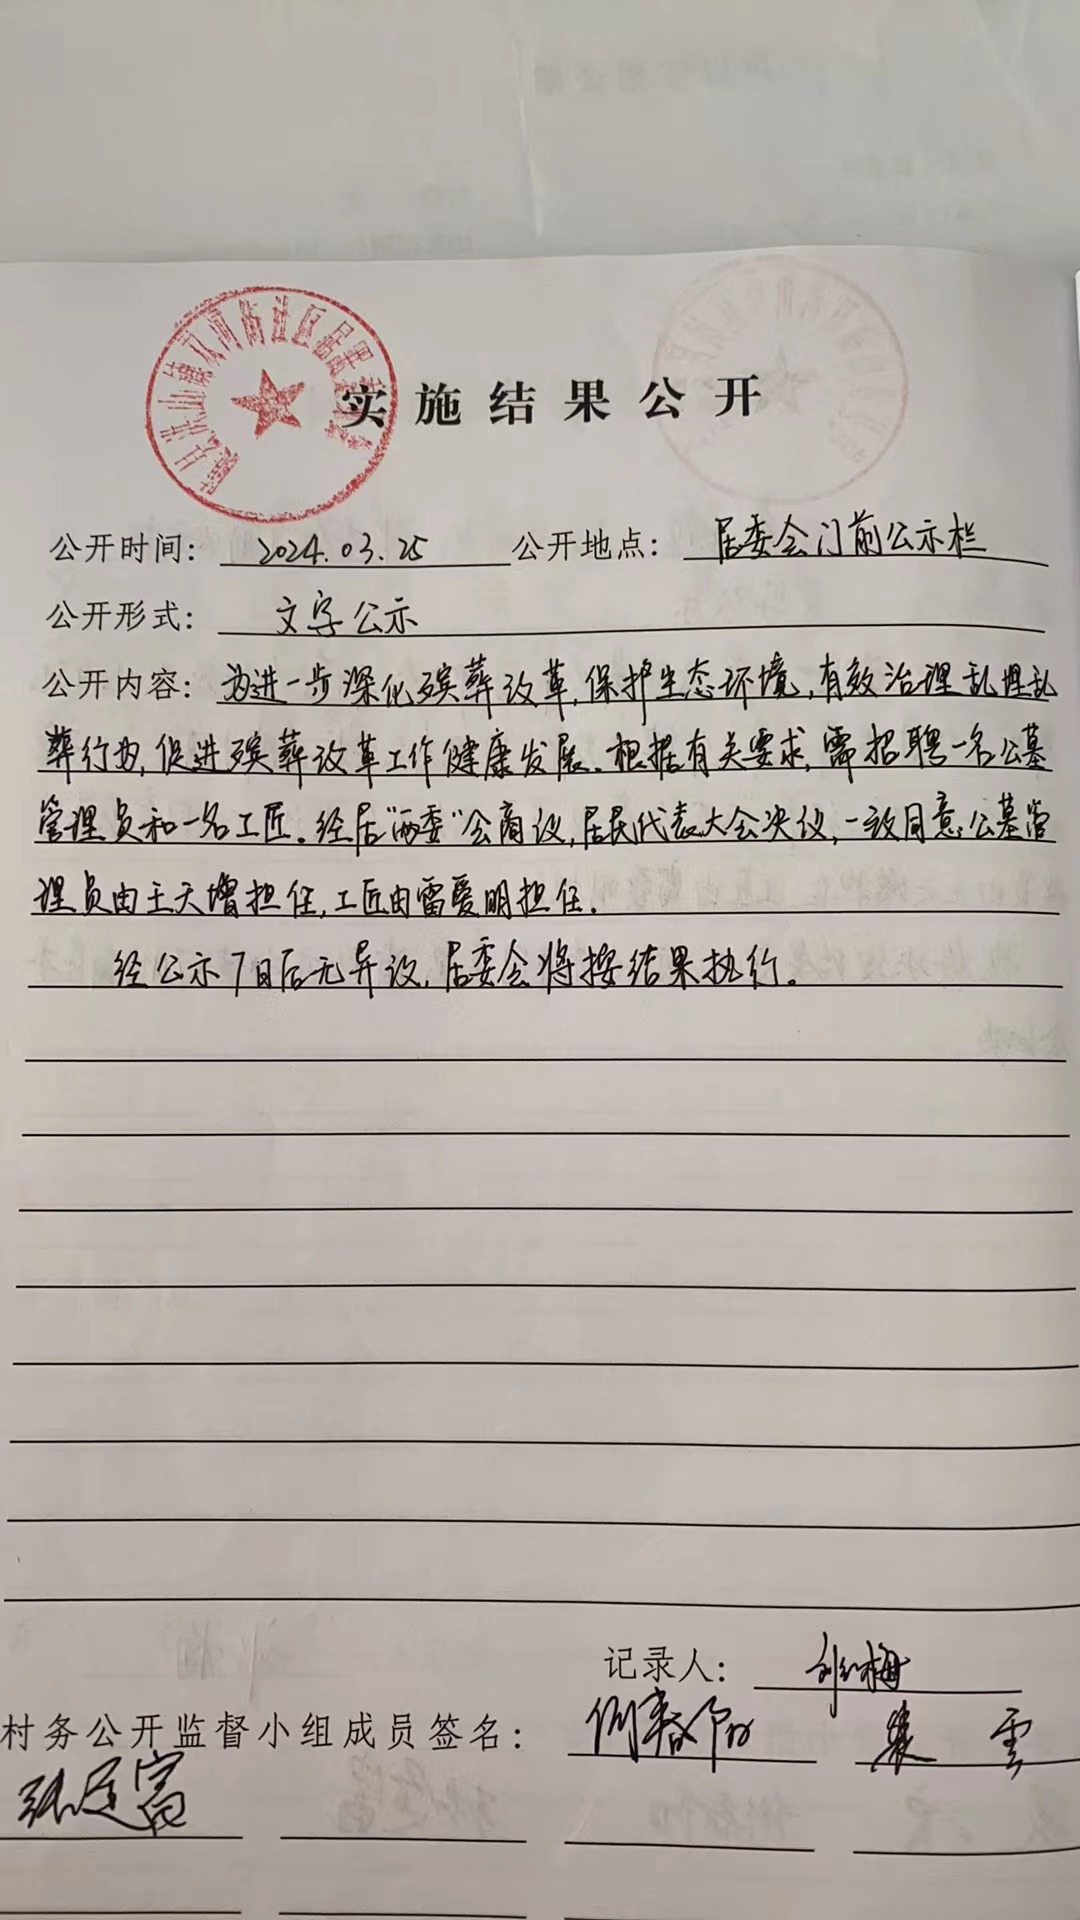 随县洪山镇双河街社区居民委员会
实施结果公开
公开时间: 2024.03.25 公开地点: 居委会门前公示栏
公开形式: 文字公示
公开内容: 为进一步深化殡葬改革,保护生态环境,有效治理乱埋乱
葬行为,促进殡葬改革工作健康发展。根据有关要求,需招聘一名公墓
管理员和一名工匠。经居“两委”会商议,居民代表大会决议,一致同意公墓管
理员由王天增担任,工匠由雷爱明担任。
经公示7日后无异议,居委会将按结果执行。
记录人:
村务公开监督小组成员签名: